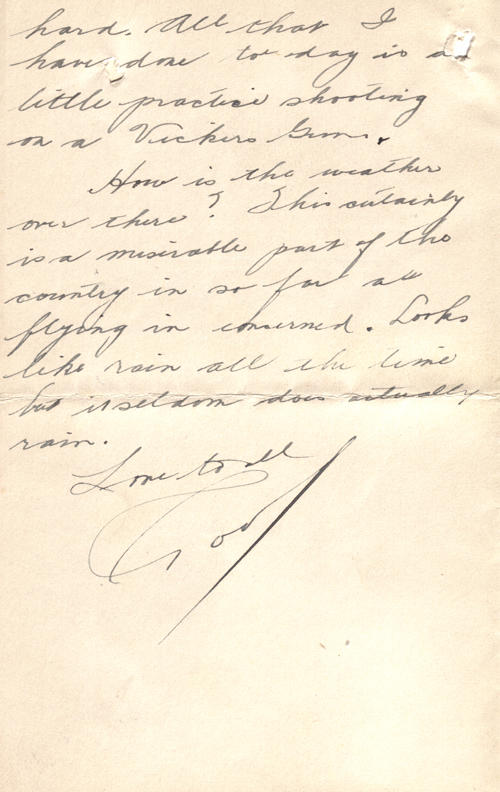 hard. All that I
have done to day is a
little practice shooting
on a Vickers Gun.
How is the weather
over there? This certainly
is a miserable part of the
country in so far as
flying in concerned. Looks
like rain all the time
but it seldom does actually
rain.
Love to all